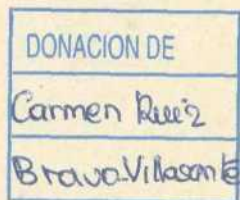 DONACION DE
Carmen Ruiz
Bravo-Villasante